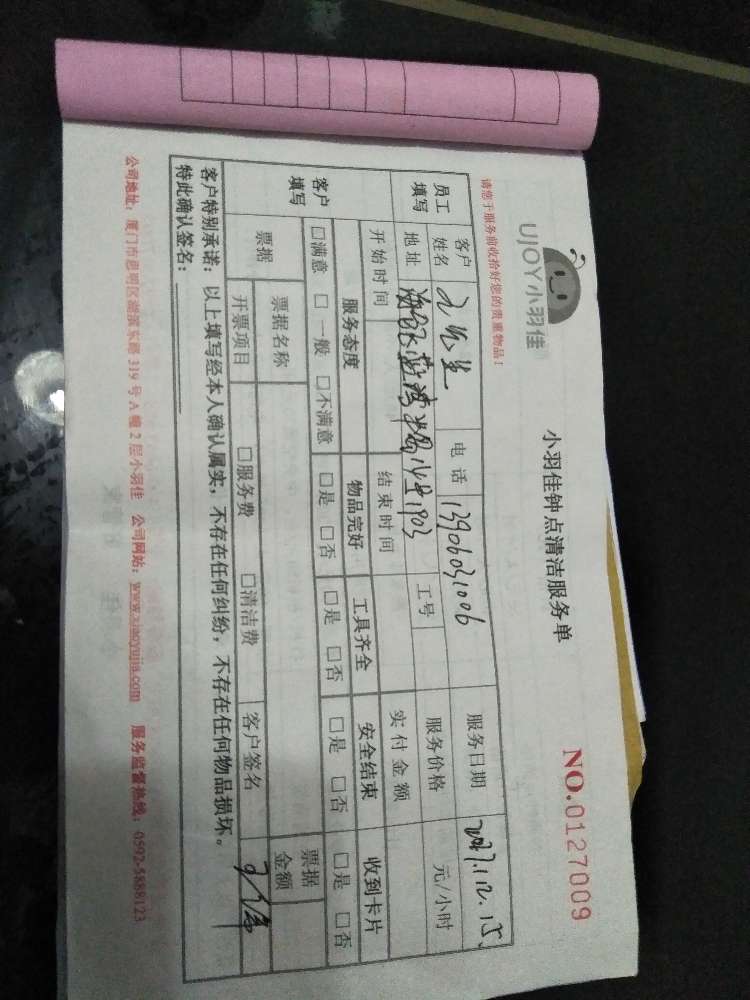 UJOY小羽佳
小羽佳钟点清洁服务单
NO.0127009
请您于服务前收拾好您的贵重物品！
员工填写 客户姓名 电话 13906031006 服务日期 2017.12.15
地址 1903 工号 服务价格 元/小时
开始时间 结束时间 实付金额
客户填写 服务态度 物品完好 工具齐全 安全结束 收到卡片
□满意 □一般 □不满意 □是 □否 □是 □否 □是 □否 □是 □否
票据 票据名称 票据金额
开票项目 □服务费 □清洁费 客户签名
客户特别承诺：以上填写经本人确认属实，不存在任何纠纷，不存在任何物品损坏。
特此确认签名：
公司地址：厦门市思明区湖滨东路319号A幢2层小羽佳 公司网站：www.xiaoyujia.com 服务监督热线：0592-5888123